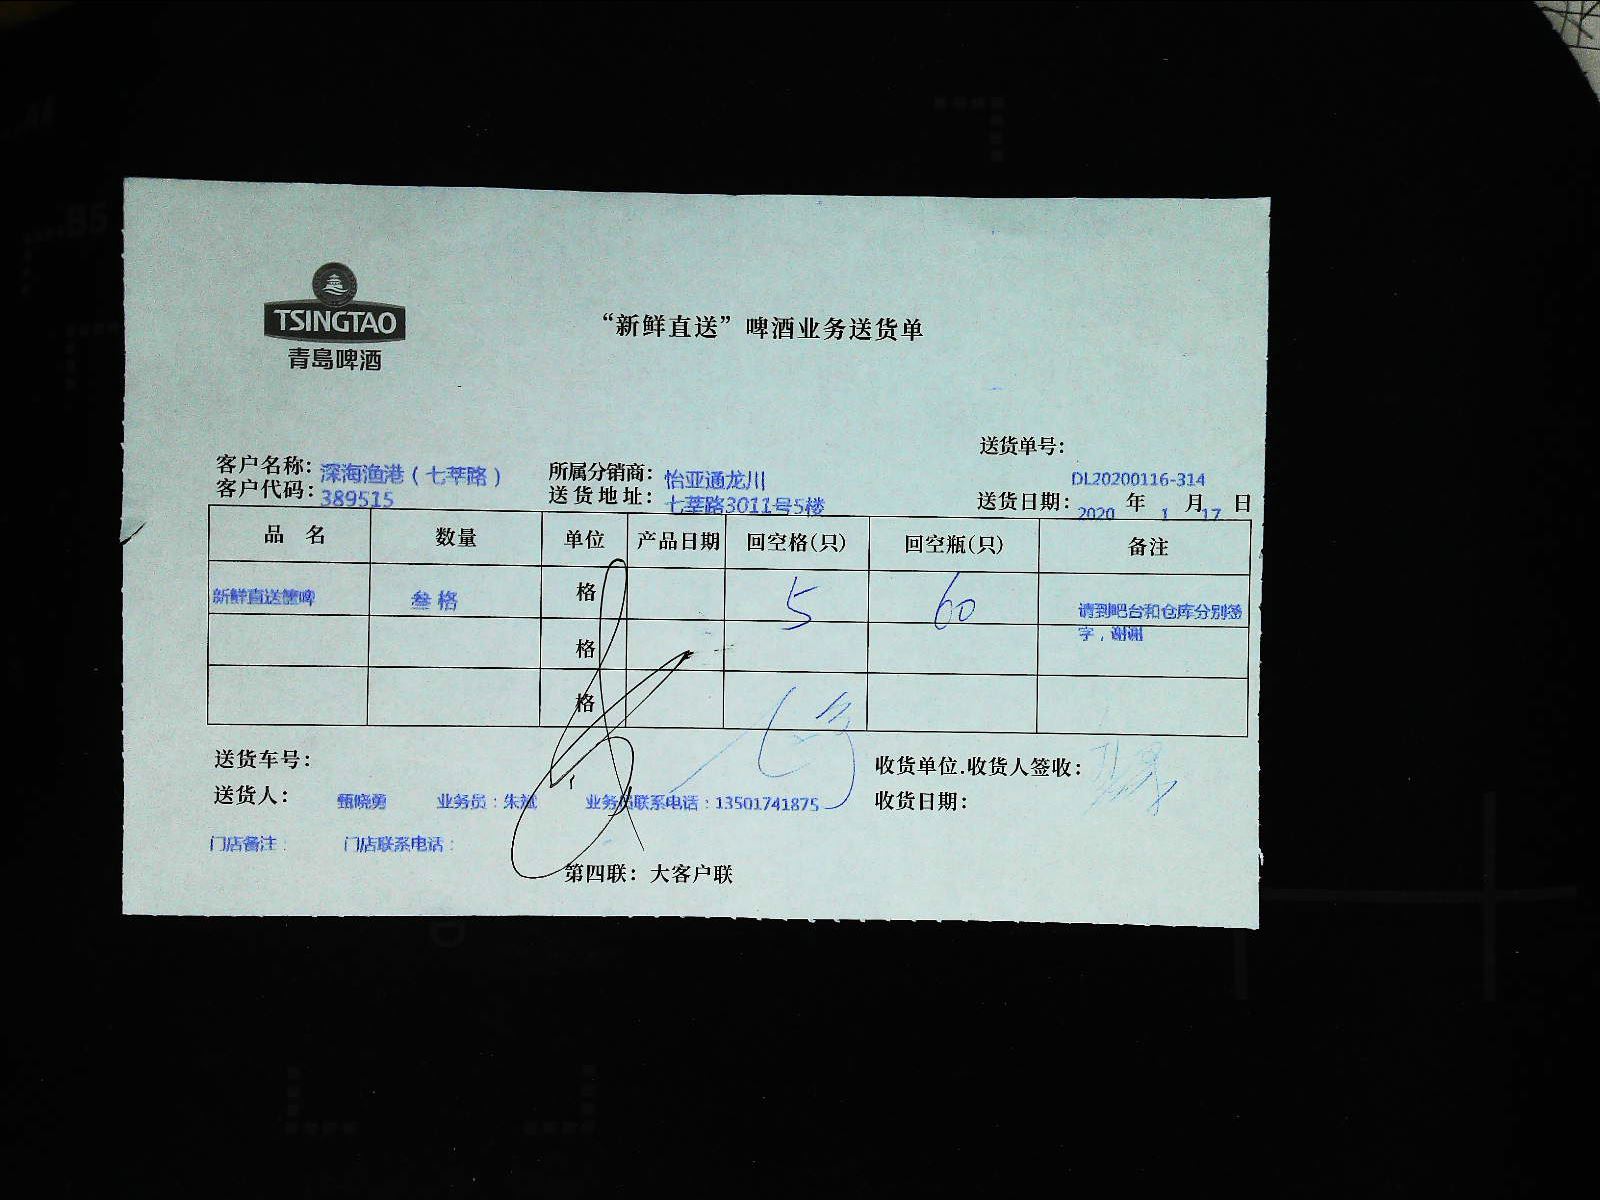 TSINGTAO
青岛啤酒
“新鲜直送”啤酒业务送货单
送货单号：
DL20200116-314
客户名称：深海渔港（七莘路） 所属分销商：怡亚通龙川
客户代码：389515 送货地址：七莘路3011号5楼 送货日期：2020 年 1 月 17 日
品 名 数量 单位 产品日期 回空格(只) 回空瓶(只) 备注
新鲜直送 叁 格 格 5 60 请到吧台和仓库分别签
字，谢谢
格
格
送货车号： 收货单位.收货人签收：
送货人： 甄晓勇 业务员：朱斌 业务员联系电话：13501741875 收货日期：
门店备注： 门店联系电话：
第四联：大客户联